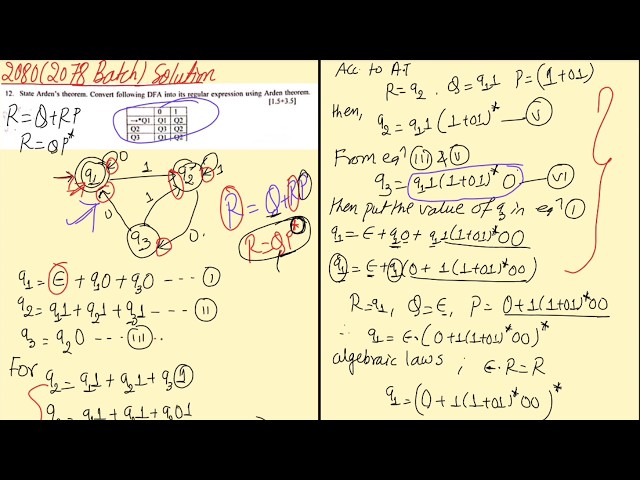 2080(2078 Batch) Solution
12. State Arden's theorem. Convert following DFA into its regular expression using Arden theorem.
[1.5+3.5]
R = Q+RP
R = QP*
0 1
→*Q1 Q1 Q2
Q2 Q3 Q2
Q3 Q1 Q2
q1 0 1 q2 1
1
0 q3 0
R = Q+RP
R=QP*
q1 = ϵ + q10 + q30 ---- I
q2 = q11 + q21 + q31 ----- II
q3 = q20 ---- III ..
For
q2 = q11 + q21 + q31
q2 = q11 + q21 + q201
Acc. to A.T
R = q2 . Q = q11 P = (1+01)
then,
q2 = q11(1+01)* — V
From eqn III & V
q3 = q11(1+01)*0 — VI
then put the value of q3 in eqn I
q1 = ϵ + q10 + q11(1+01)*00
q1 = ϵ + q1(0 + 1(1+01)*00)
R=q1, Q=ϵ, P= 0+1(1+01)*00
∴ q1 = ϵ.(0+1(1+01)*00)*
algebraic laws ; ϵ.R=R
q1 = (0+1(1+01)*00)*